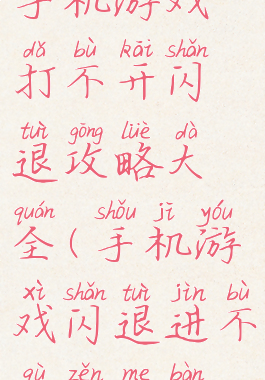 手机游戏
dǎ bù kāi shǎn
打不开闪
tuì gōng lüè dà
退攻略大
quán shǒu jī yóu
全(手机游
xì shǎn tuì jìn bù
戏闪退进不
qù zěn me bàn